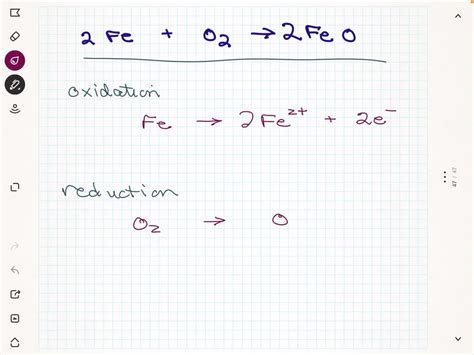 2 Fe + O₂ → 2 Fe O
oxidation
Fe → 2Fe²⁺ + 2e⁻
reduction
O₂ → O
47 / 47